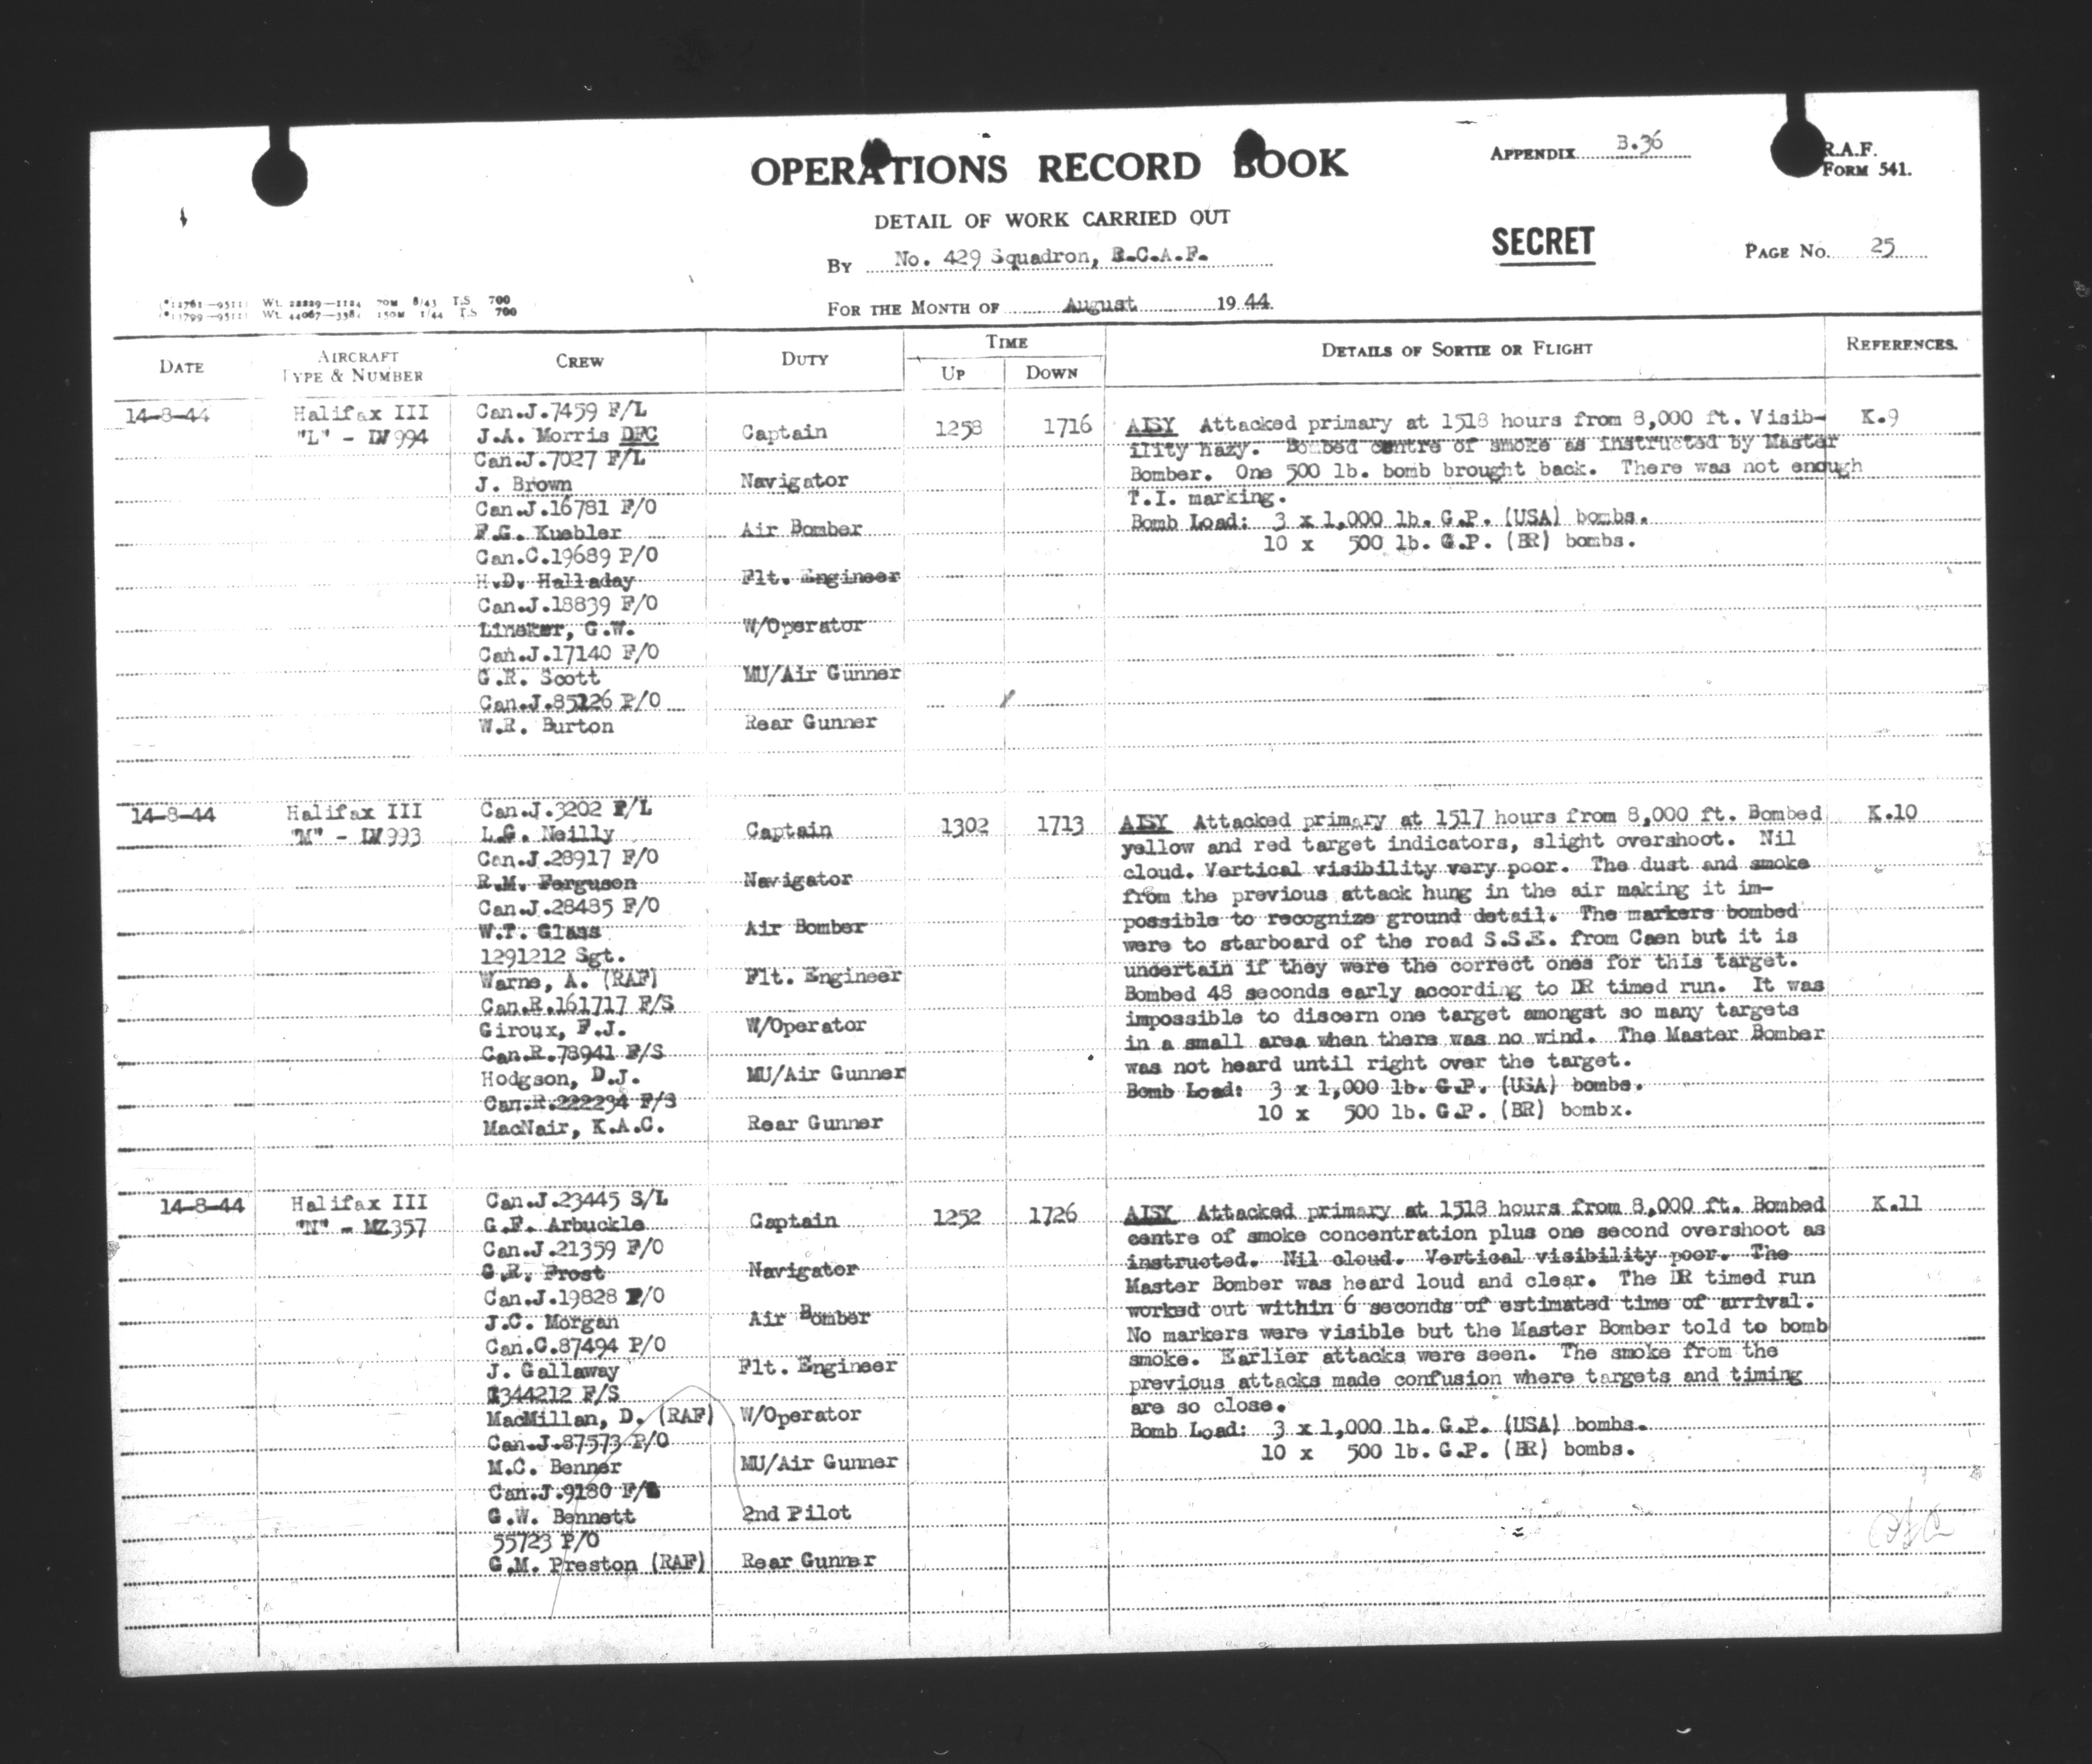 OPERATIONS RECORD BOOK
APPENDIX B.36
R.A.F.
FORM 541.
DETAIL OF WORK CARRIED OUT
SECRET
PAGE No. 25
By No. 429 Squadron, R.C.A.F.
FOR THE MONTH OF August 1944.
DATE
AIRCRAFT TYPE & NUMBER
CREW
DUTY
TIME
UP
DOWN
DETAILS OF SORTIE OR FLIGHT
REFERENCES.
14-8-44
Halifax III
"L" - LV994
Can.J.7459 F/L
J.A. Morris DFC Captain
Can.J.7027 F/L
J. Brown Navigator
Can.J.16781 F/O
F.G. Kuebler Air Bomber
Can.C.19689 P/O
H.D. Halladay Flt. Engineer
Can.J.18839 F/O
Lineker, G.W. W/Operator
Can.J.17140 F/O
G.R. Scott MU/Air Gunner
Can.J.85126 P/O
W.R. Burton Rear Gunner
1258 1716
AISY Attacked primary at 1518 hours from 8,000 ft. Visib-
ility hazy. Bombed centre of smoke as instructed by Master
Bomber. One 500 lb. bomb brought back. There was not enough
T.I. marking.
Bomb Load: 3 x 1,000 lb. G.P. (USA) bombs.
10 x 500 lb. G.P. (BR) bombs.
K.9
14-8-44
Halifax III
"M" - LV993
Can.J.3202 F/L
L.G. Neilly Captain
Can.J.28917 F/O
R.M. Ferguson Navigator
Can.J.28485 F/O
W.T. Glass Air Bomber
1291212 Sgt.
Warne, A. (RAF) Flt. Engineer
Can.R.161717 F/S
Giroux, F.J. W/Operator
Can.R.78941 F/S
Hodgson, D.J. MU/Air Gunner
Can.R.222234 F/S
MacNair, K.A.C. Rear Gunner
1302 1713
AISY Attacked primary at 1517 hours from 8,000 ft. Bombed
yellow and red target indicators, slight overshoot. Nil
cloud. Vertical visibility very poor. The dust and smoke
from the previous attack hung in the air making it im-
possible to recognize ground detail. The markers bombed
were to starboard of the road S.S.E. from Caen but it is
uncertain if they were the correct ones for this target.
Bombed 48 seconds early according to DR timed run. It was
impossible to discern one target amongst so many targets
in a small area when there was no wind. The Master Bomber
was not heard until right over the target.
Bomb Load: 3 x 1,000 lb. G.P. (USA) bombs.
10 x 500 lb. G.P. (BR) bombx.
K.10
14-8-44
Halifax III
"N" - MZ357
Can.J.23445 S/L
G.F. Arbuckle Captain
Can.J.21359 F/O
G.R. Frost Navigator
Can.J.19828 F/O
J.C. Morgan Air Bomber
Can.C.87494 P/O
J. Gallaway Flt. Engineer
1344212 F/S
MacMillan, D. (RAF) W/Operator
Can.J.87573 P/O
M.C. Benner MU/Air Gunner
Can.J.9180
G.W. Bennett 2nd Pilot
55723 P/O
G.M. Preston (RAF) Rear Gunner
1252 1726
AISY Attacked primary at 1518 hours from 8,000 ft. Bombed
centre of smoke concentration plus one second overshoot as
instructed. Nil cloud. Vertical visibility poor. The
Master Bomber was heard loud and clear. The DR timed run
worked out within 6 seconds of estimated time of arrival.
No markers were visible but the Master Bomber told to bomb
smoke. Earlier attacks were seen. The smoke from the
previous attacks made confusion where targets and timing
are so close.
Bomb Load: 3 x 1,000 lb. G.P. (USA) bombs.
10 x 500 lb. G.P. (BR) bombs.
K.11